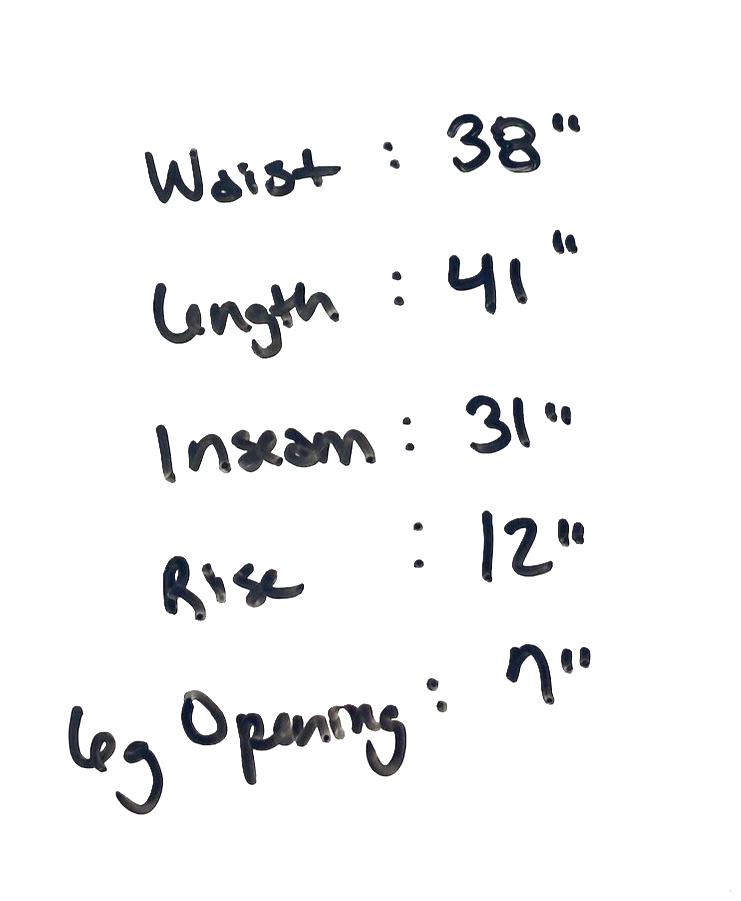 Waist : 38"
Length : 41"
Inseam : 31"
Rise : 12"
Leg Opening : 7"